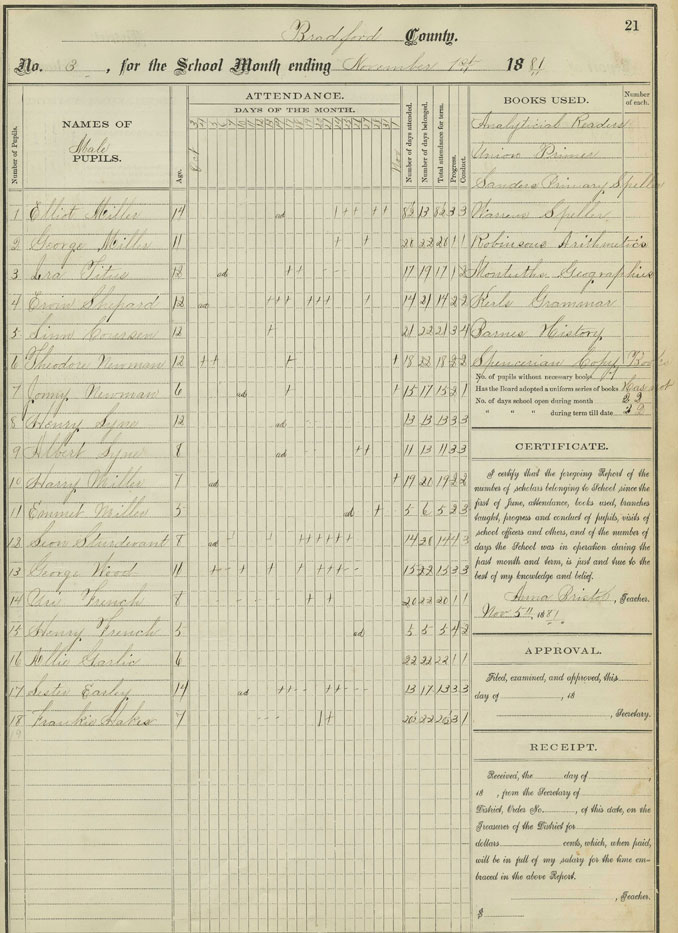 21
Bradford County.
No. 3, for the School Month ending November 1st 1881
ATTENDANCE.
DAYS OF THE MONTH.
Number of Pupils.
NAMES OF
Male
PUPILS.
Age.
Oct
Nov
Number of days attended.
Number of days belonged.
Total attendance for term.
Progress.
Conduct.
BOOKS USED.
Number of each.
1 Elliot Miller 14
2 George Miller 11 20 22 20 1 1
3 Ira Titus 12 ad 17 19 17 1 2
4 Ervin Shepard 12 14 21 14 2 2
5 12 21 22 21 3 4
6 Theodore Newman 12 18 22 18 2 2
7 Jonny Newman 6 ad 15 17 15 2 1
8 Henry Lyne 12 ad 13 13 13 3 3
9 Albert Lyne 8 ad 11 13 11 3 3
10 Harry Miller 7 ad 19 20 19 2 2
11 Emmet Miller 5 ad 5 6 5 2 3
12 Leon Sturdevant 8 ad 14 20 14 4 3
13 George Wood 11 15 22 15 3 3
14 French 8 20 22 20 1 1
15 Henry French 5 ad 5 5 5 4 2
16 Allie Garlic 6 22 22 22 1 1
17 Lester Earley 14 ad 13 17 13 3 3
18 Frankie Hakes 7
Analytical Readers
Union Primer
Sanders Primary Speller
Warrens Speller
Robinsons Arithmetics
Monteiths Geographies
Kerls Grammar
Barnes History
Spencerian Copy Books
No. of pupils without necessary books
Has the Board adopted a uniform series of books Has not
No. of days school open during month 22
" " " during term till date 22
CERTIFICATE.
I certify that the foregoing Report of the
number of scholars belonging to School since the
first of June, attendance, books used, branches
taught, progress and conduct of pupils, visits of
school officers and others, and of the number of
days the School was in operation during the
past month and term, is just and true to the
best of my knowledge and belief.
Anna Bristol, Teacher.
Nov 5", 1881.
APPROVAL.
Filed, examined, and approved, this
day of , 18
, Secretary.
RECEIPT.
Received, the day of ,
18 , from the Secretary of
District, Order No. , of this date, on the
Treasurer of the District for
dollars cents, which, when paid,
will be in full of my salary for the time em-
braced in the above Report.
, Teacher.
$